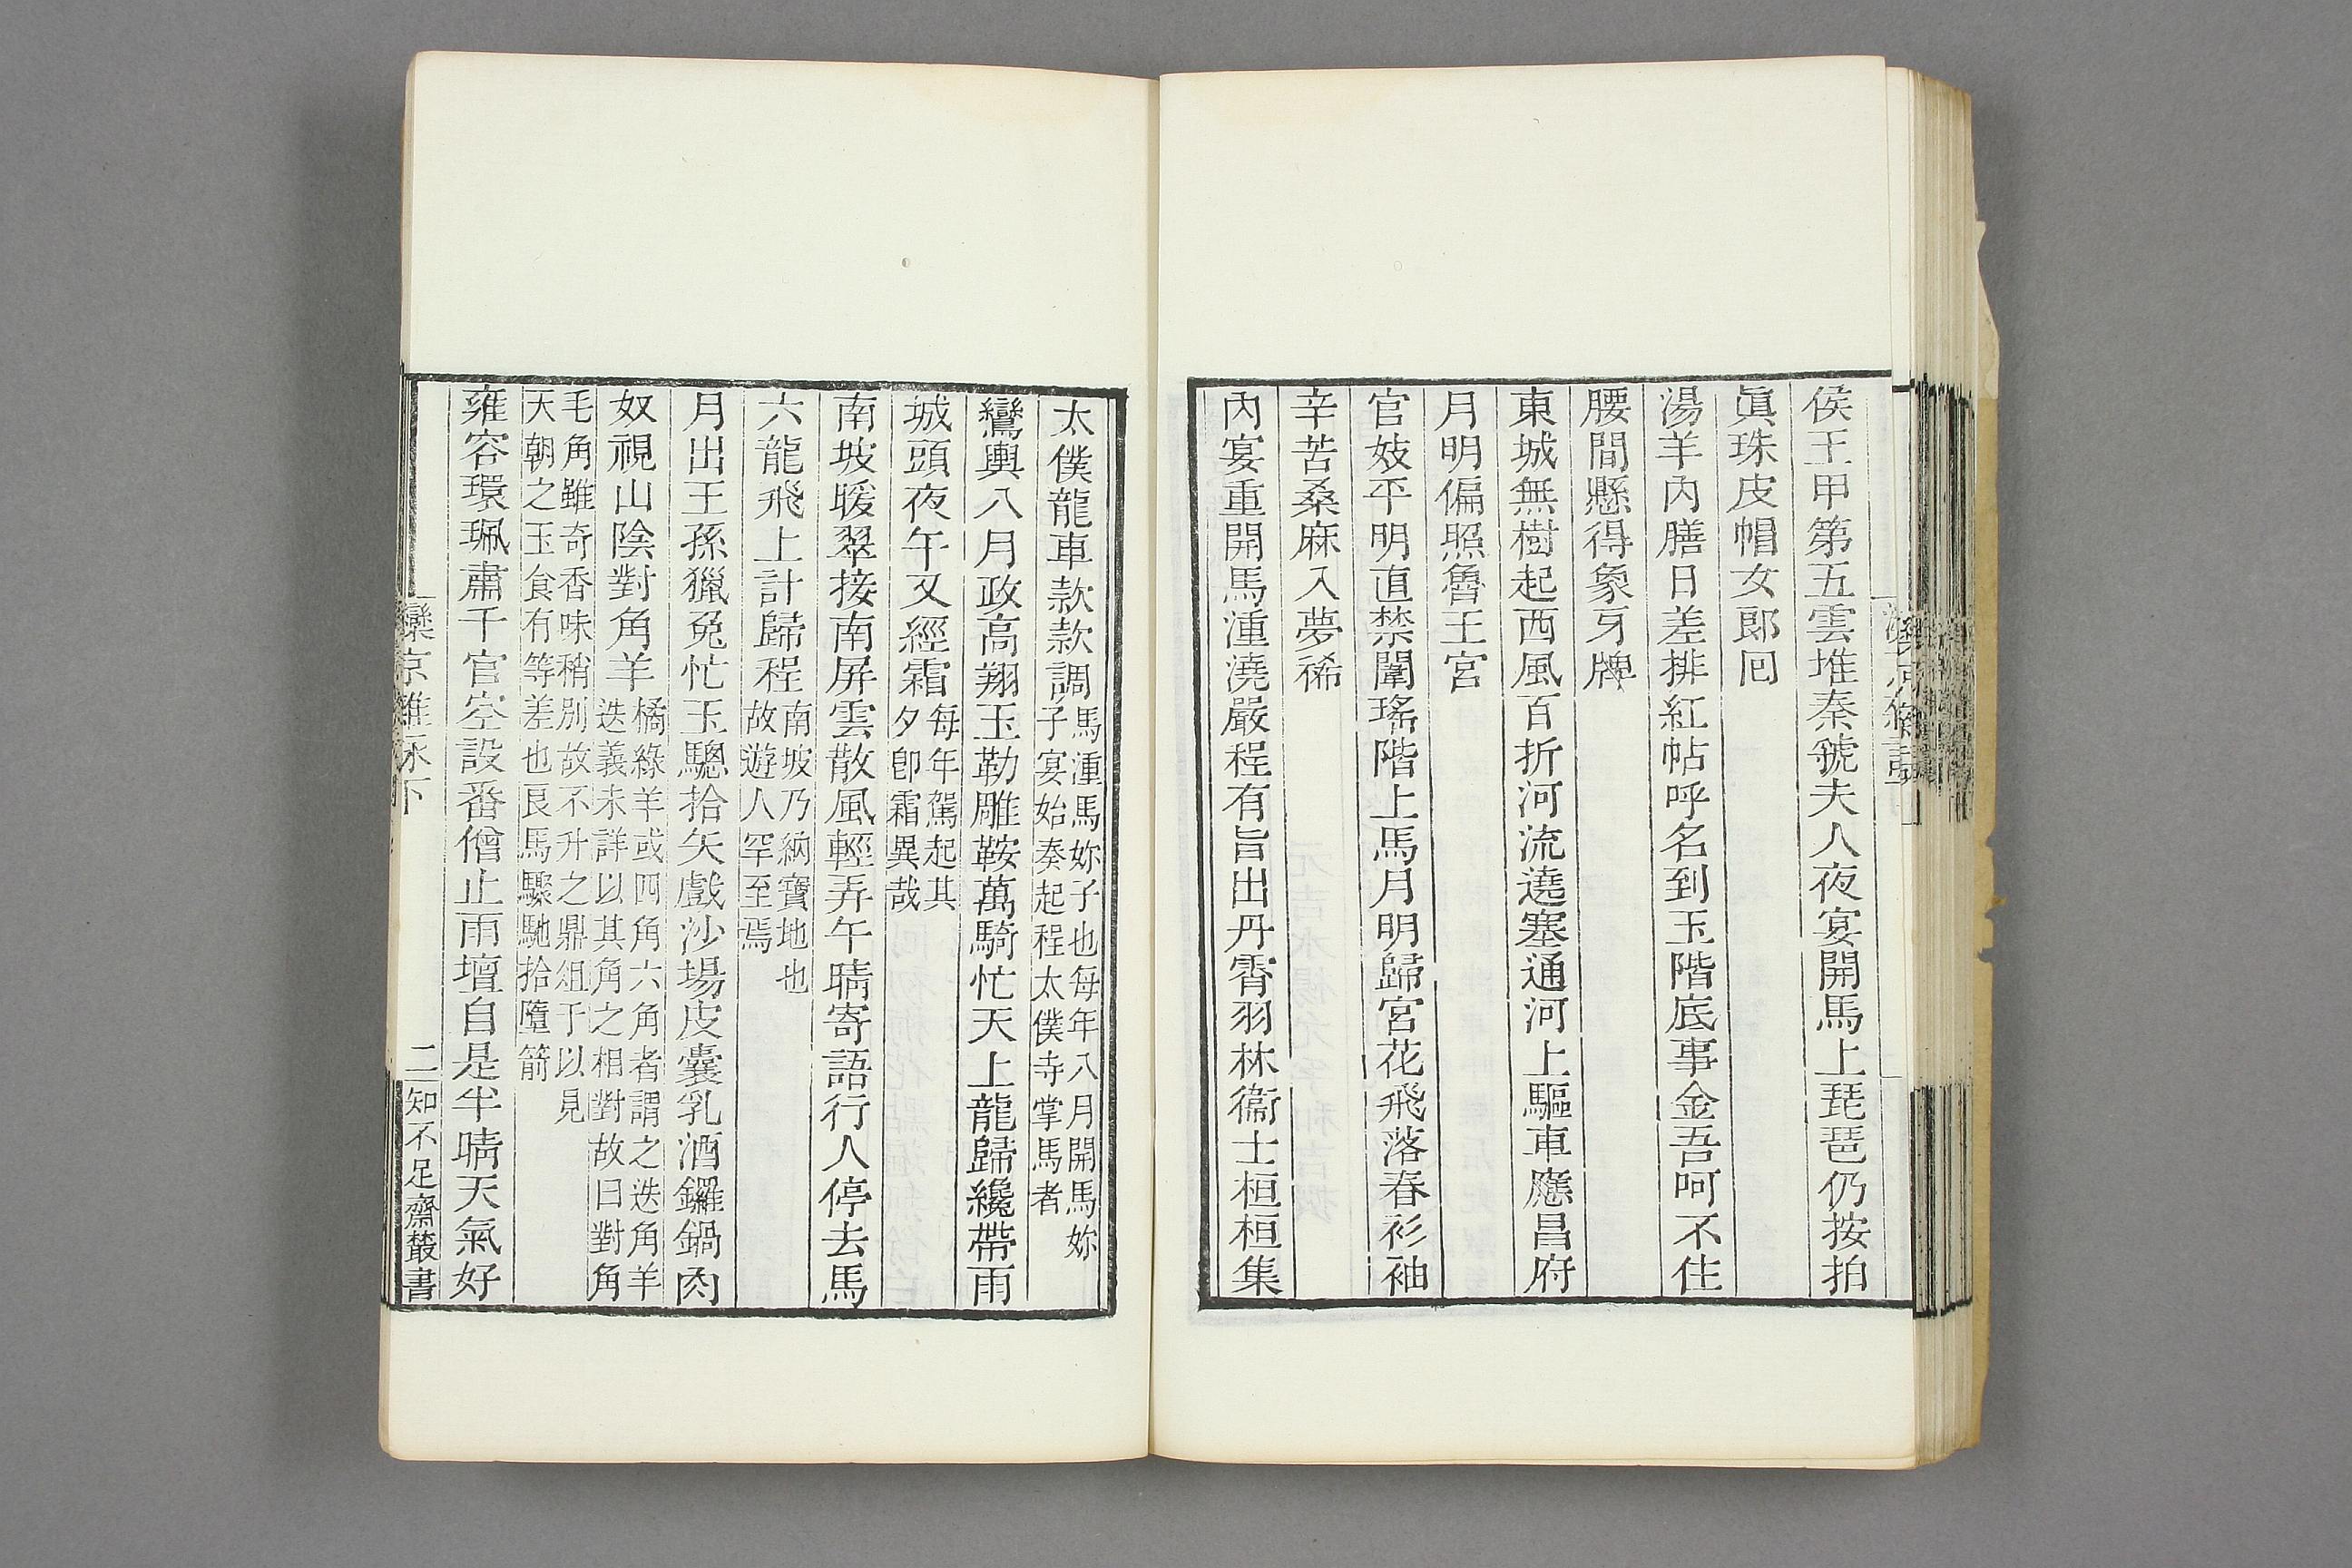 侯王甲第五雲堆秦虢夫人夜宴開馬上琵琶仍按拍
眞珠皮帽女郎囘
湯羊內膳日差排紅帖呼名到玉階底事金吾呵不住
腰間懸得象牙牌
東城無樹起西風百折河流遶塞通河上驅車應昌府
月明偏照魯王宮
官妓平明直禁闈瑤階上馬月明歸宮花飛落春衫袖
辛苦桑麻入夢稀
內宴重開馬湩澆嚴程有旨出丹霄羽林衞士桓桓集
太僕龍車款款調馬湩馬妳子也每年八月開馬妳
子宴始奏起程太僕寺掌馬者
鸞輿八月政高翔玉勒雕鞍萬騎忙天上龍歸纔帶雨
城頭夜午又經霜每年駕起其
夕卽霜異哉
南坡暖翠接南屏雲散風輕弄午晴寄語行人停去馬
六龍飛上計歸程南坡乃納寶地也
故遊人罕至焉
月出王孫獵兔忙玉驄拾矢戲沙場皮囊乳酒鑼鍋肉
奴視山陰對角羊橘綠羊或四角六角者謂之迭角羊
迭義未詳以其角之相對故曰對角
毛角雖奇香味稍別故不升之鼎俎于以見
天朝之玉食有等差也艮馬驟馳拾墮箭
雍容環珮肅千官空設番僧止雨壇自是半晴天氣好
灤京雜詠下
二
知不足齋叢書